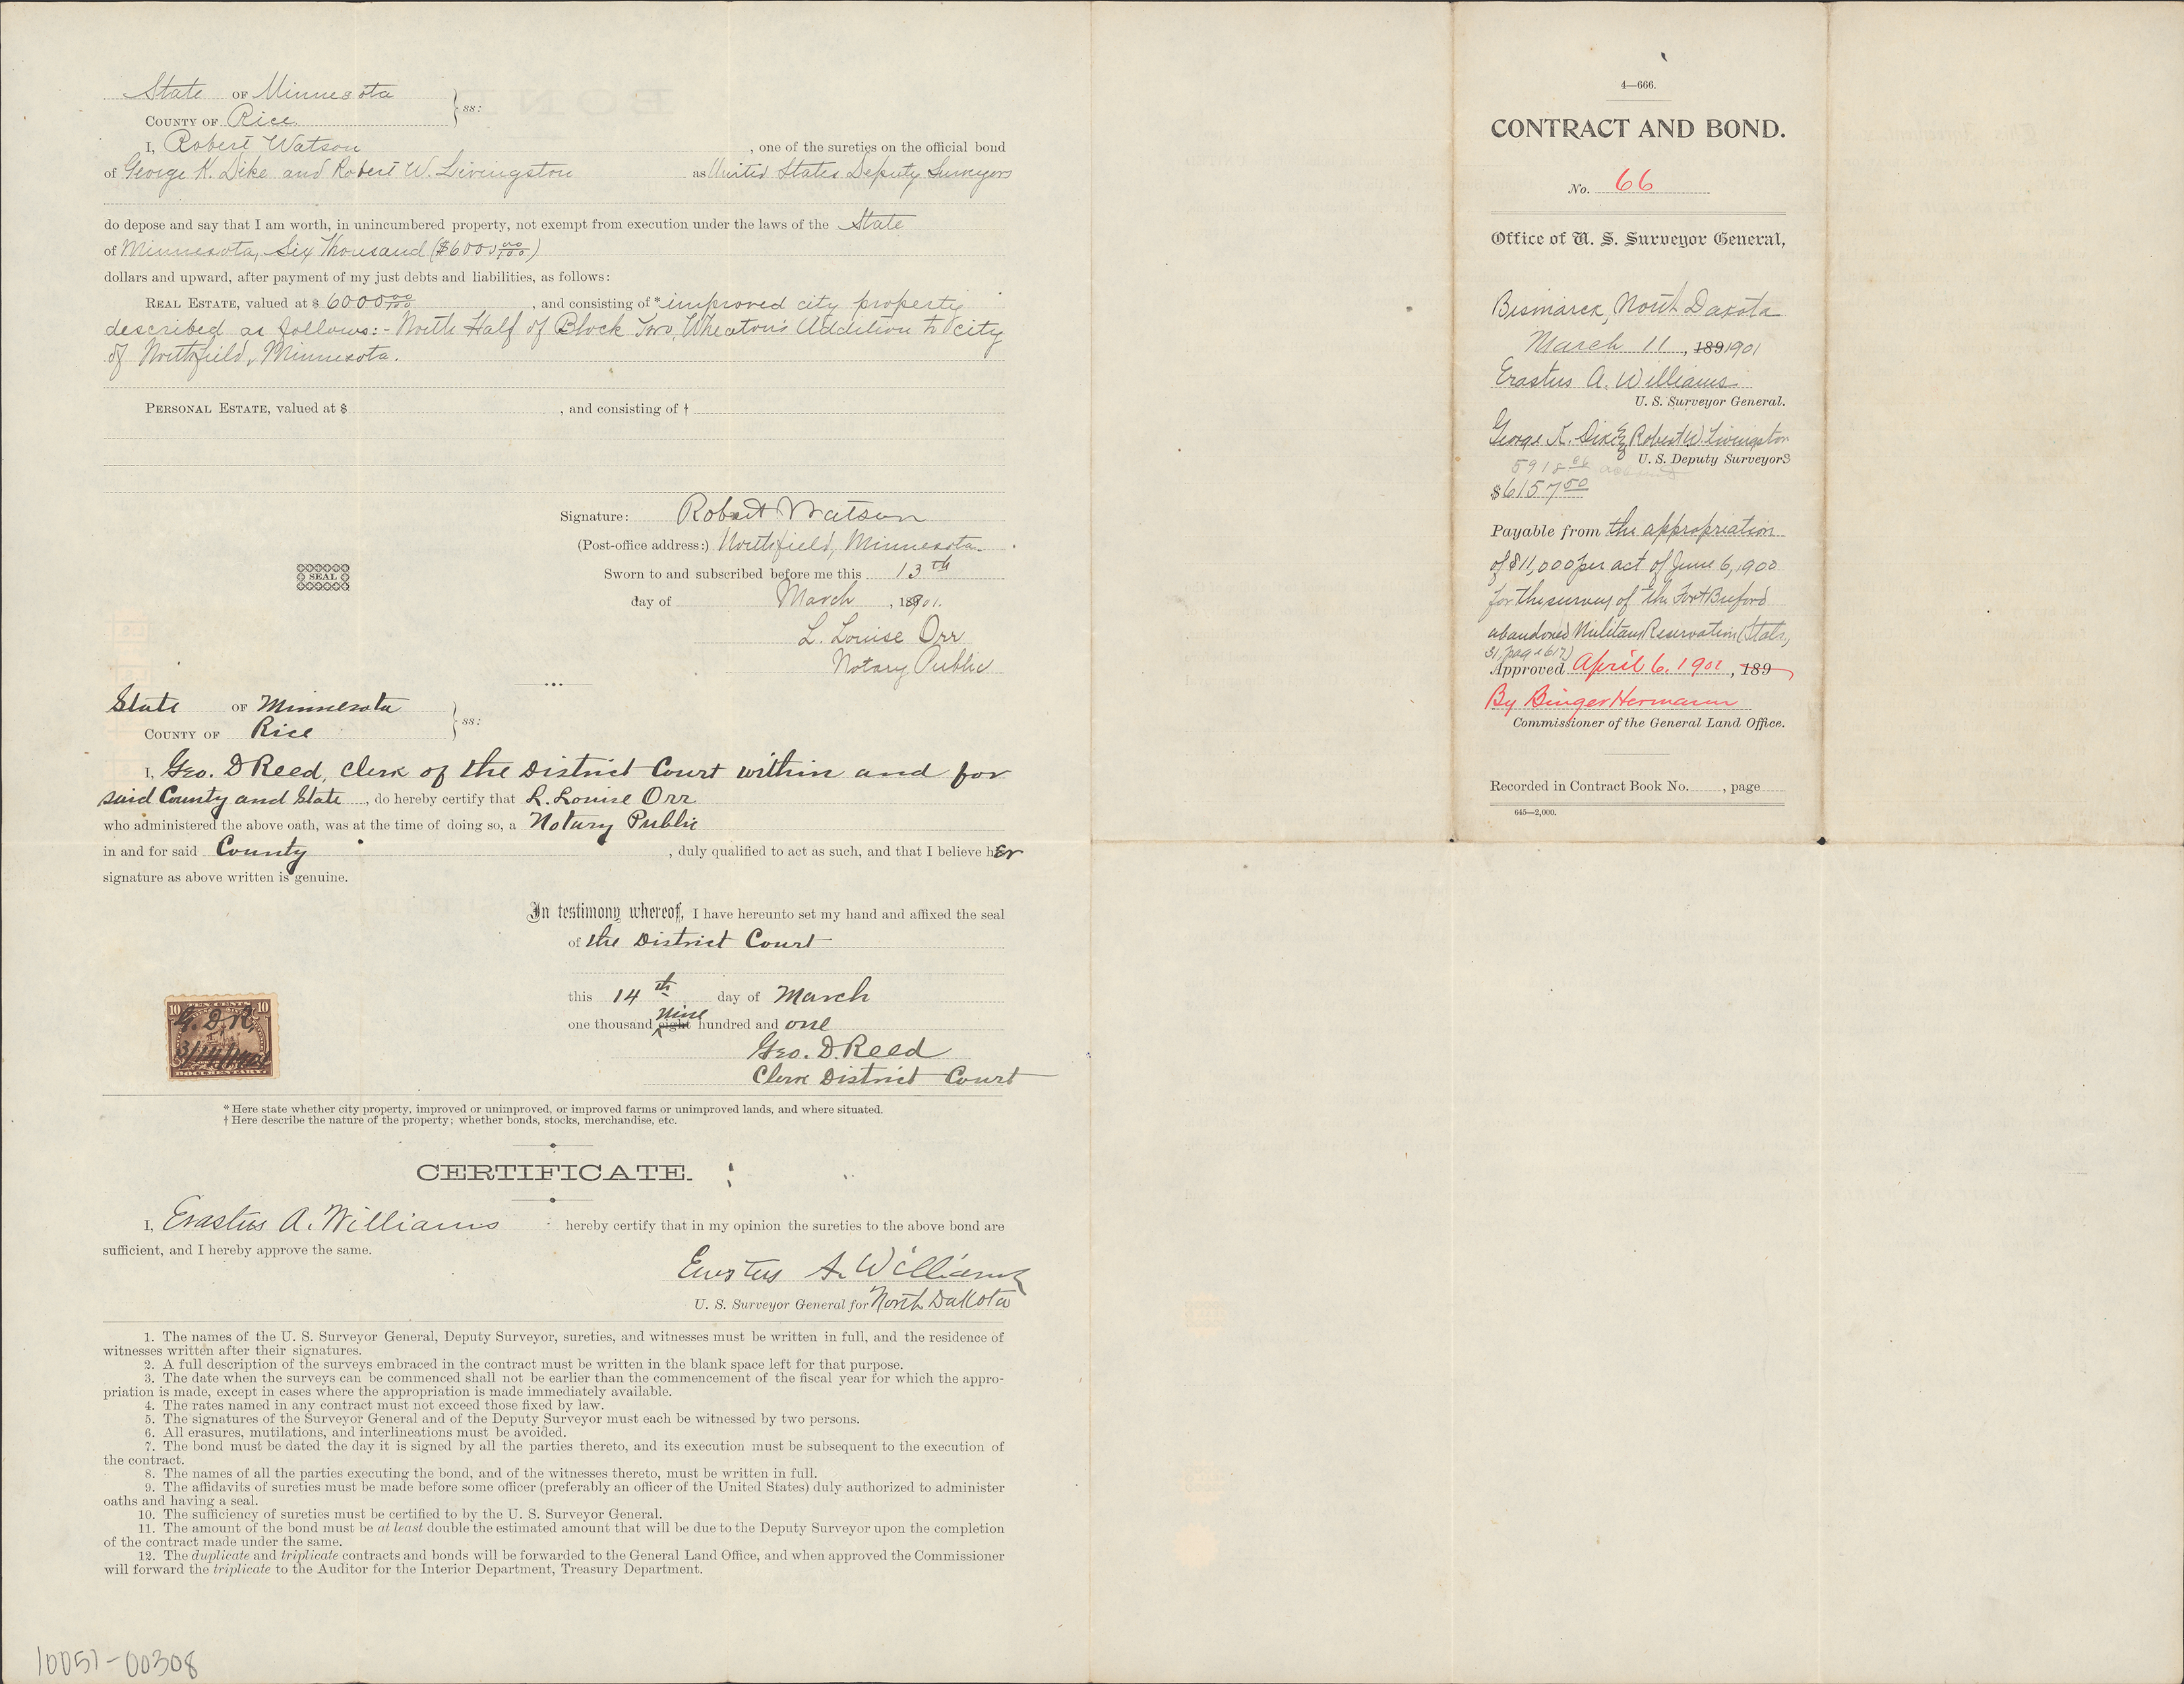 State OF Minnesota
COUNTY OF Rice
} ss:
I, Robert Watson , one of the sureties on the official bond
of George K. Dike and Robert W. Livingston as United States Deputy Surveyors
do depose and say that I am worth, in unincumbered property, not exempt from execution under the laws of the State
of Minnesota, Six Thousand ($6000 00/100)
dollars and upward, after payment of my just debts and liabilities, as follows:
REAL ESTATE, valued at $ 6000 00/100 , and consisting of * improved city property
described as follows:- North Half of Block Two, Wheaton's Addition to city
of Northfield, Minnesota.
PERSONAL ESTATE, valued at $ , and consisting of †
Signature: Robert Watson
(Post-office address:) Northfield, Minnesota.
SEAL
Sworn to and subscribed before me this 13th
day of March , 1901.
L. Louise Orr
Notary Public
State OF Minnesota
COUNTY OF Rice
} ss:
I, Geo. D Reed, Clerk of the District Court within and for
said County and State , do hereby certify that L. Louise Orr
who administered the above oath, was at the time of doing so, a Notary Public
in and for said County , duly qualified to act as such, and that I believe her
signature as above written is genuine.
In testimony whereof, I have hereunto set my hand and affixed the seal
of the District Court
this 14th day of March
one thousand eight nine hundred and one
Geo. D. Reed
Clerk District Court
TEN CENTS
10 10
G. D. R.
DOCUMENTARY
* Here state whether city property, improved or unimproved, or improved farms or unimproved lands, and where situated.
† Here describe the nature of the property; whether bonds, stocks, merchandise, etc.
CERTIFICATE.
I, Erastus A. Williams hereby certify that in my opinion the sureties to the above bond are
sufficient, and I hereby approve the same.
Erastus A. Williams
U. S. Surveyor General for North Dakota
1. The names of the U. S. Surveyor General, Deputy Surveyor, sureties, and witnesses must be written in full, and the residence of
witnesses written after their signatures.
2. A full description of the surveys embraced in the contract must be written in the blank space left for that purpose.
3. The date when the surveys can be commenced shall not be earlier than the commencement of the fiscal year for which the appro-
priation is made, except in cases where the appropriation is made immediately available.
4. The rates named in any contract must not exceed those fixed by law.
5. The signatures of the Surveyor General and of the Deputy Surveyor must each be witnessed by two persons.
6. All erasures, mutilations, and interlineations must be avoided.
7. The bond must be dated the day it is signed by all the parties thereto, and its execution must be subsequent to the execution of
the contract.
8. The names of all the parties executing the bond, and of the witnesses thereto, must be written in full.
9. The affidavits of sureties must be made before some officer (preferably an officer of the United States) duly authorized to administer
oaths and having a seal.
10. The sufficiency of sureties must be certified to by the U. S. Surveyor General.
11. The amount of the bond must be at least double the estimated amount that will be due to the Deputy Surveyor upon the completion
of the contract made under the same.
12. The duplicate and triplicate contracts and bonds will be forwarded to the General Land Office, and when approved the Commissioner
will forward the triplicate to the Auditor for the Interior Department, Treasury Department.
10051-00308
4—666.
CONTRACT AND BOND.
No. 66
Office of U. S. Surveyor General,
Bismarck, North Dakota
March 11 , 189 1901
Erastus A. Williams
U. S. Surveyor General.
George K. Dike & Robert W. Livingston
U. S. Deputy Surveyors
5918 06
$6157 50
Payable from the appropriation
of $11,000 per act of June 6, 1900
for the survey of the Fort Buford
abandoned Military Reservation (Stats,
31, page 617)
Approved April 6, 1901 , 189
By Binger Hermann
Commissioner of the General Land Office.
Recorded in Contract Book No. , page
645—2,000.